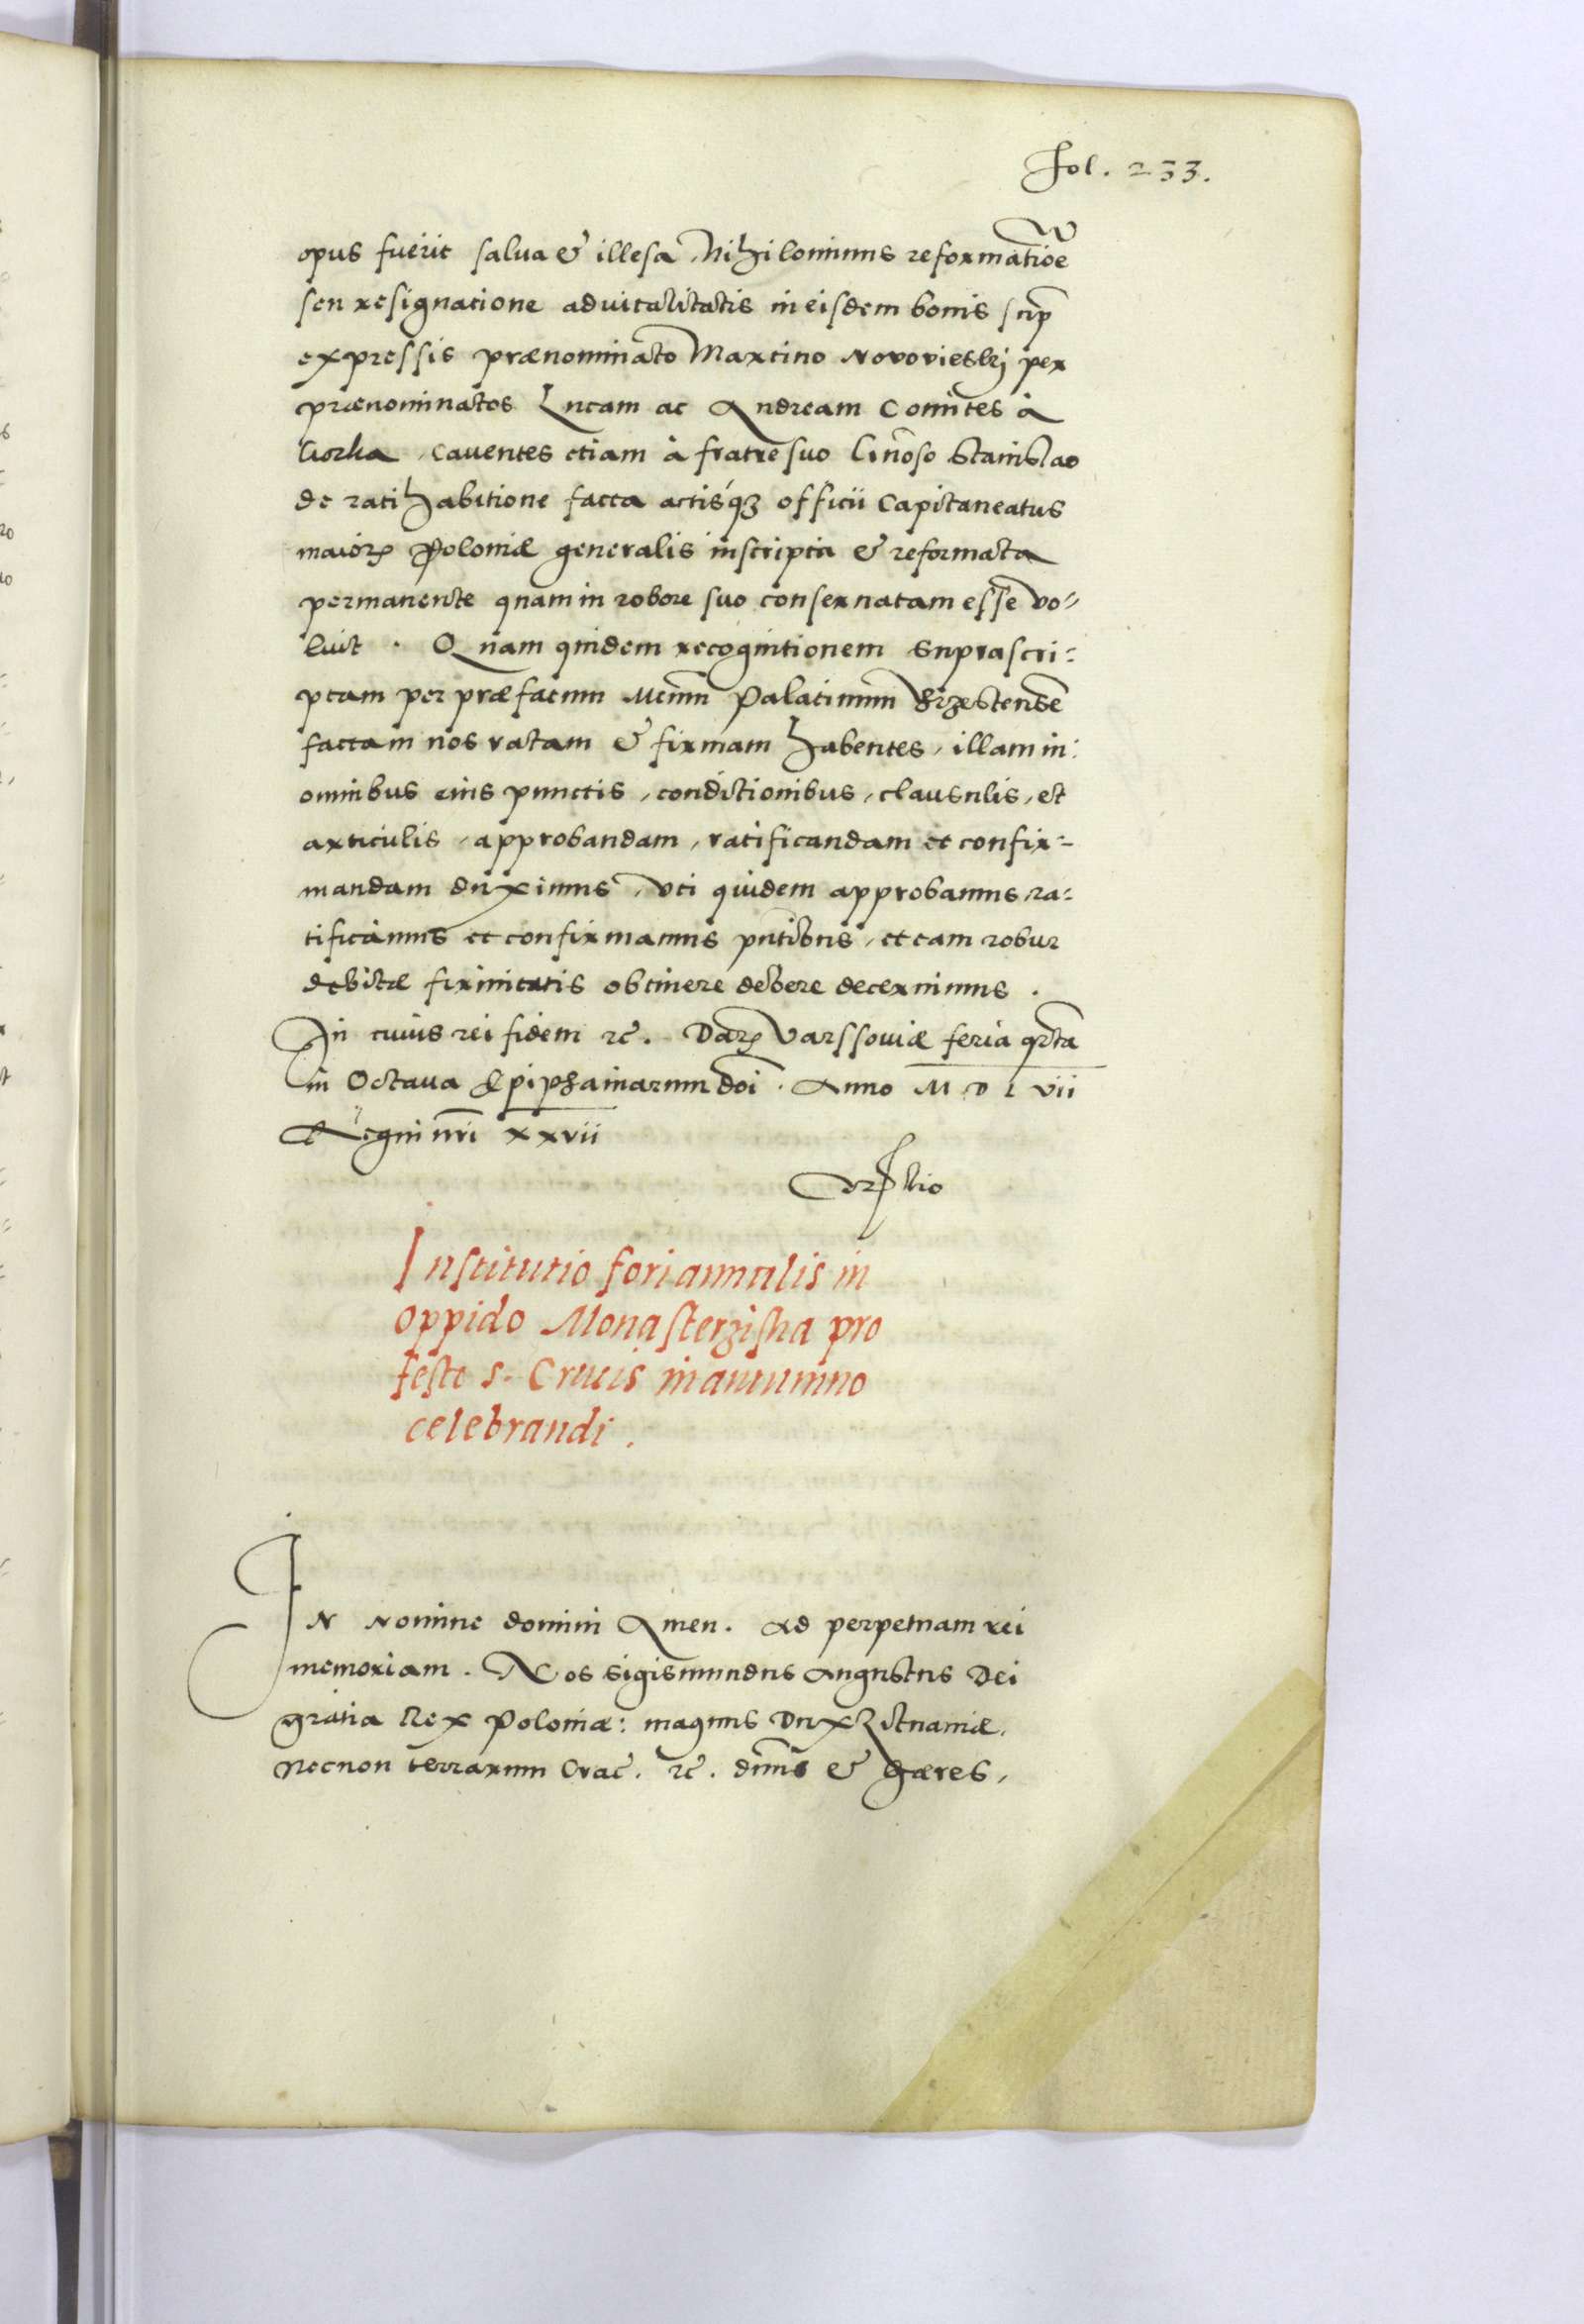 Fol. 233.
opus fuerit salva & illesa, Nihilominus reformatiōe
seu resignatione advitalitatis in eisdem bonis sup
expressis prænominato Martino Novovieski per
prænominatos Lucam ac Andream Comites à
Gorka, Caventes etiam à fratre suo Gn̄oso Stanislao
de ratihabitione facta actisq́ꝫ officii Capitaneatus
maioꝝ Poloniæ generalis inscripta & reformata
permanente quam in robore suo conservatam esse vo-
luit. Quam quidem recognitionem suprascri-
ptam per præfatum Mcum̄ Palatinum Brzestensē
factam nos ratam & firmam habentes, illam in
omnibus eius punctis, conditionibus, clausulis, et
articulis, approbandam, ratificandam et confir-
mandam duximus, uti quidem approbamus, ra-
tificamus et confirmamus pn̄tibus, et eam robur
debitæ firmitatis obtinere debere decernimus.
In cuius rei fidem ꝛc̄. Datꝝ Varssoviæ feria qrta
in Octava Epiphaniarum doi. Anno M D L vii
Regni nr̄i xxvii
Institutio fori annualis in
oppido Monasterziska pro
festo s. Crucis in autumno
celebrandi.
IN Nomine domini Amen. Ad perpetuam rei
memoriam. Nos Sigismundus Augustus Dei
gratia Rex Poloniæ: magnus Dux Lituaniæ,
Necnon terrarum Crac̄. ꝛc̄. dn̄us & hæres,